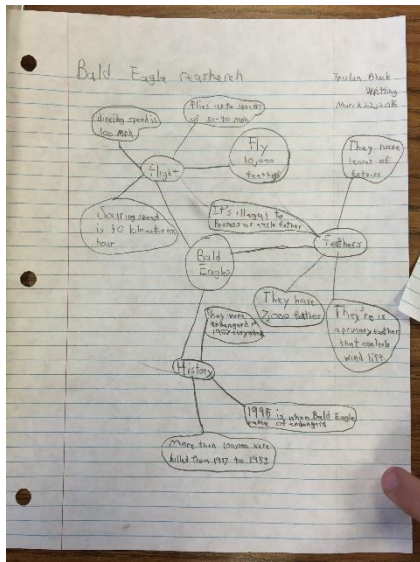 Bald Eagle reasherch
Writing
March 22, 2016
diveing speed is
100 mph
Flies up to speeds
of 30-40 mph
Fly
10,000
feet high
They have
of
fethers
Flight
Soaring speed
is 30 kilometers an
hour
It's illegal to
Possess an eagle father
Feathers
Bald
Eagle
They have
7,000 father
They're is
a primary father
that controls
wind lift.
They were
endangered in
1967
History
1995 is when Bald Eagle
came of endangerd
More than 100,000 were
killed from 1917 to 1952